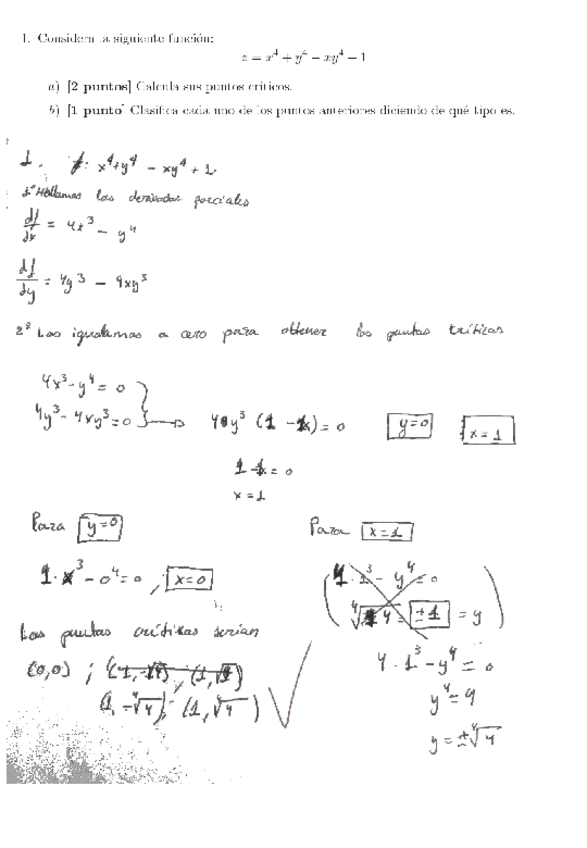 1. Considera la siguiente función:
z = x⁴ + y⁴ − xy⁴ − 1
a) [2 puntos] Calcula sus puntos críticos.
b) [1 punto] Clasifica cada uno de los puntos anteriores diciendo de qué tipo es.
1. f: x⁴+y⁴ − xy⁴ + 1.
1º Hallamos las derivadas parciales
df/dx = 4x³ − y⁴
df/dy = 4y³ − 4xy³
2º Los igualamos a cero para obtener los puntos críticos
4x³−y⁴ = 0
4y³−4xy³=0 → 4y³ (1 −x) = 0 y=0 x=1
1−x = 0
x=1
Para y=0
x³ − 0⁴ = 0, x=0
Los puntos críticos serian
(0,0) ;
(1, −∜4), (1, ∜4)
Para x=1
4·1³ − y⁴ = 0
= ±1 = y
4·1³−y⁴ = 0
y⁴=4
y = ±∜4